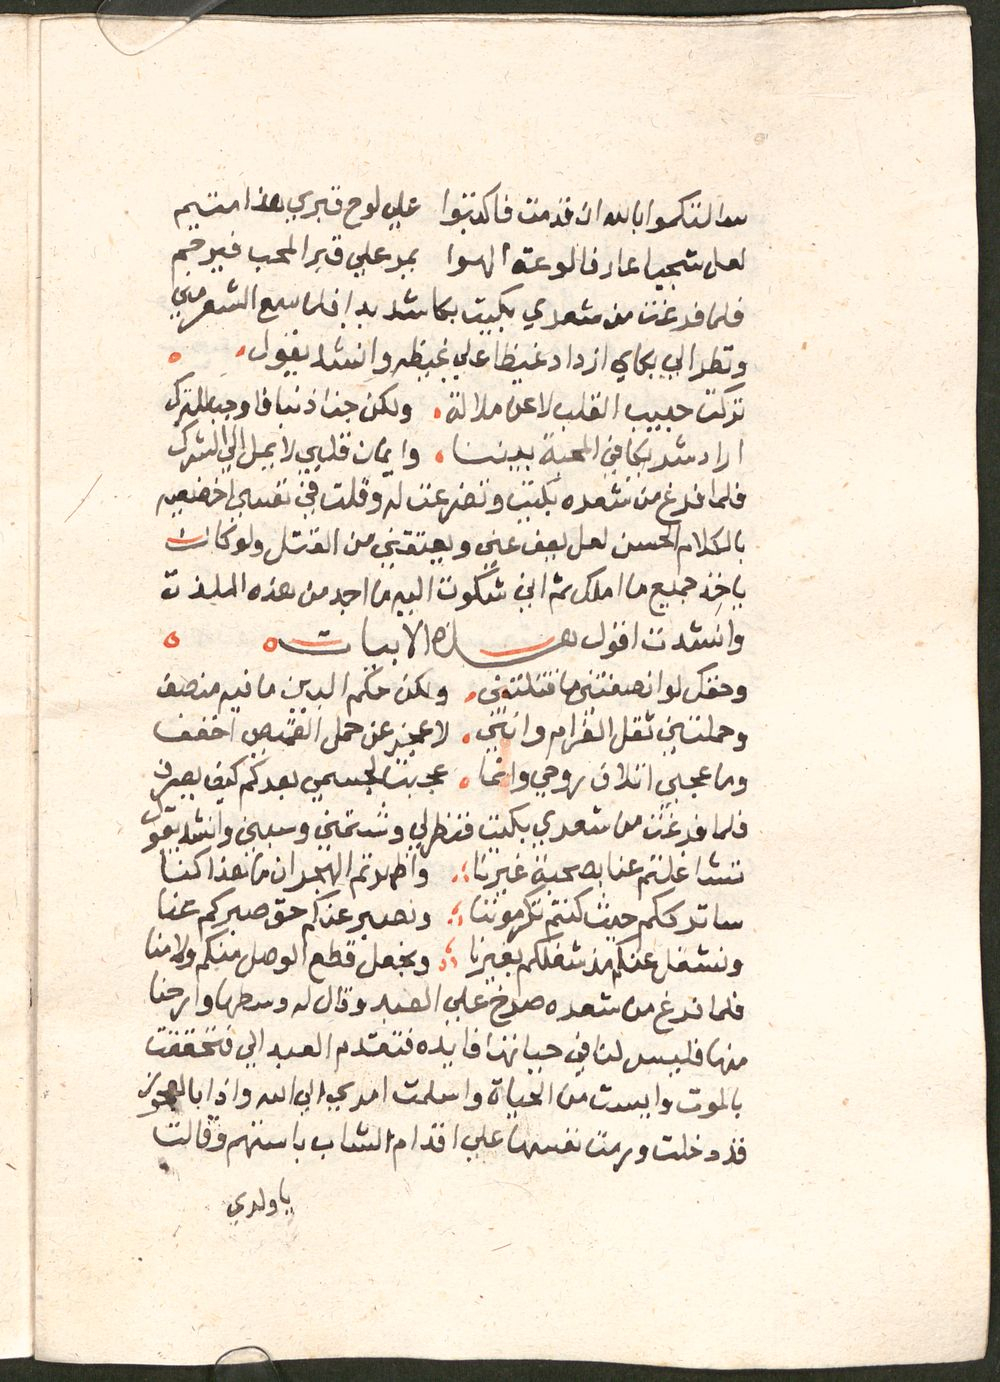 سالتكموا بالله ان قد مت فاكتبوا علي لوح قبري هذا متيم
لعل شجيا عارفا لوعة الهوا يمر علي قبر المحب فيرحم
فلما فرغت من شعري بكيت بكا شديدا فلما سمع الشعر مني
ونظر الي بكاي ازداد غيظا علي غيظه وانشد يقول
تركت حبيب القلب لا عن ملالة ولكن جنا ذنبا فاوجب الترك
اراد شريكا في المحبة بيننا وايمان قلبي لا يميل الي الشرك
فلما فرغ من شعره بكيت وتضرعت له وقلت في نفسي اخضعه
بالكلام الحسن لعل يعف عني ويعتقني من القتل ولو كان
ياخذ جميع ما املك ثم اني شكوت اليه ما اجد من هذه الملذة
وانشدت اقول هذه الابيات
وحقك لو انصفتني ما قتلتني ولكن حكم البين ما فيه منصف
وحملتني ثقل الغرام وانني لاعجز عن حمل القميص اضعف
وما عجبي اتلاف روحي وانما عجبت لجسمي بعدكم كيف يعرف
فلما فرغت من شعري بكيت فنظرلي وشتمني وسبني وانشد يقول
تشاغلتم عنا بصحبة غيرنا واظهرتم الهجران ما هذا كنا
ساترككم حيث كنتم تكرهوننا ونصبر عنكم حق صبركم عنا
ونشغل عنكم مذ شغلكم بغيرنا ونجعل قطع الوصل منكم ولا منا
فلما فرغ من شعره صرخ علي العبد وقال له وسطها وارحنا
منها فليس لنا في حياتها فايده فتقدم العبد الي فتحققت
بالموت وايست من الحياة واسلمت امري الي الله واذا بالعجوز
قد دخلت ورمت نفسها علي اقدام الشاب باستهم وقالت
ياولدي